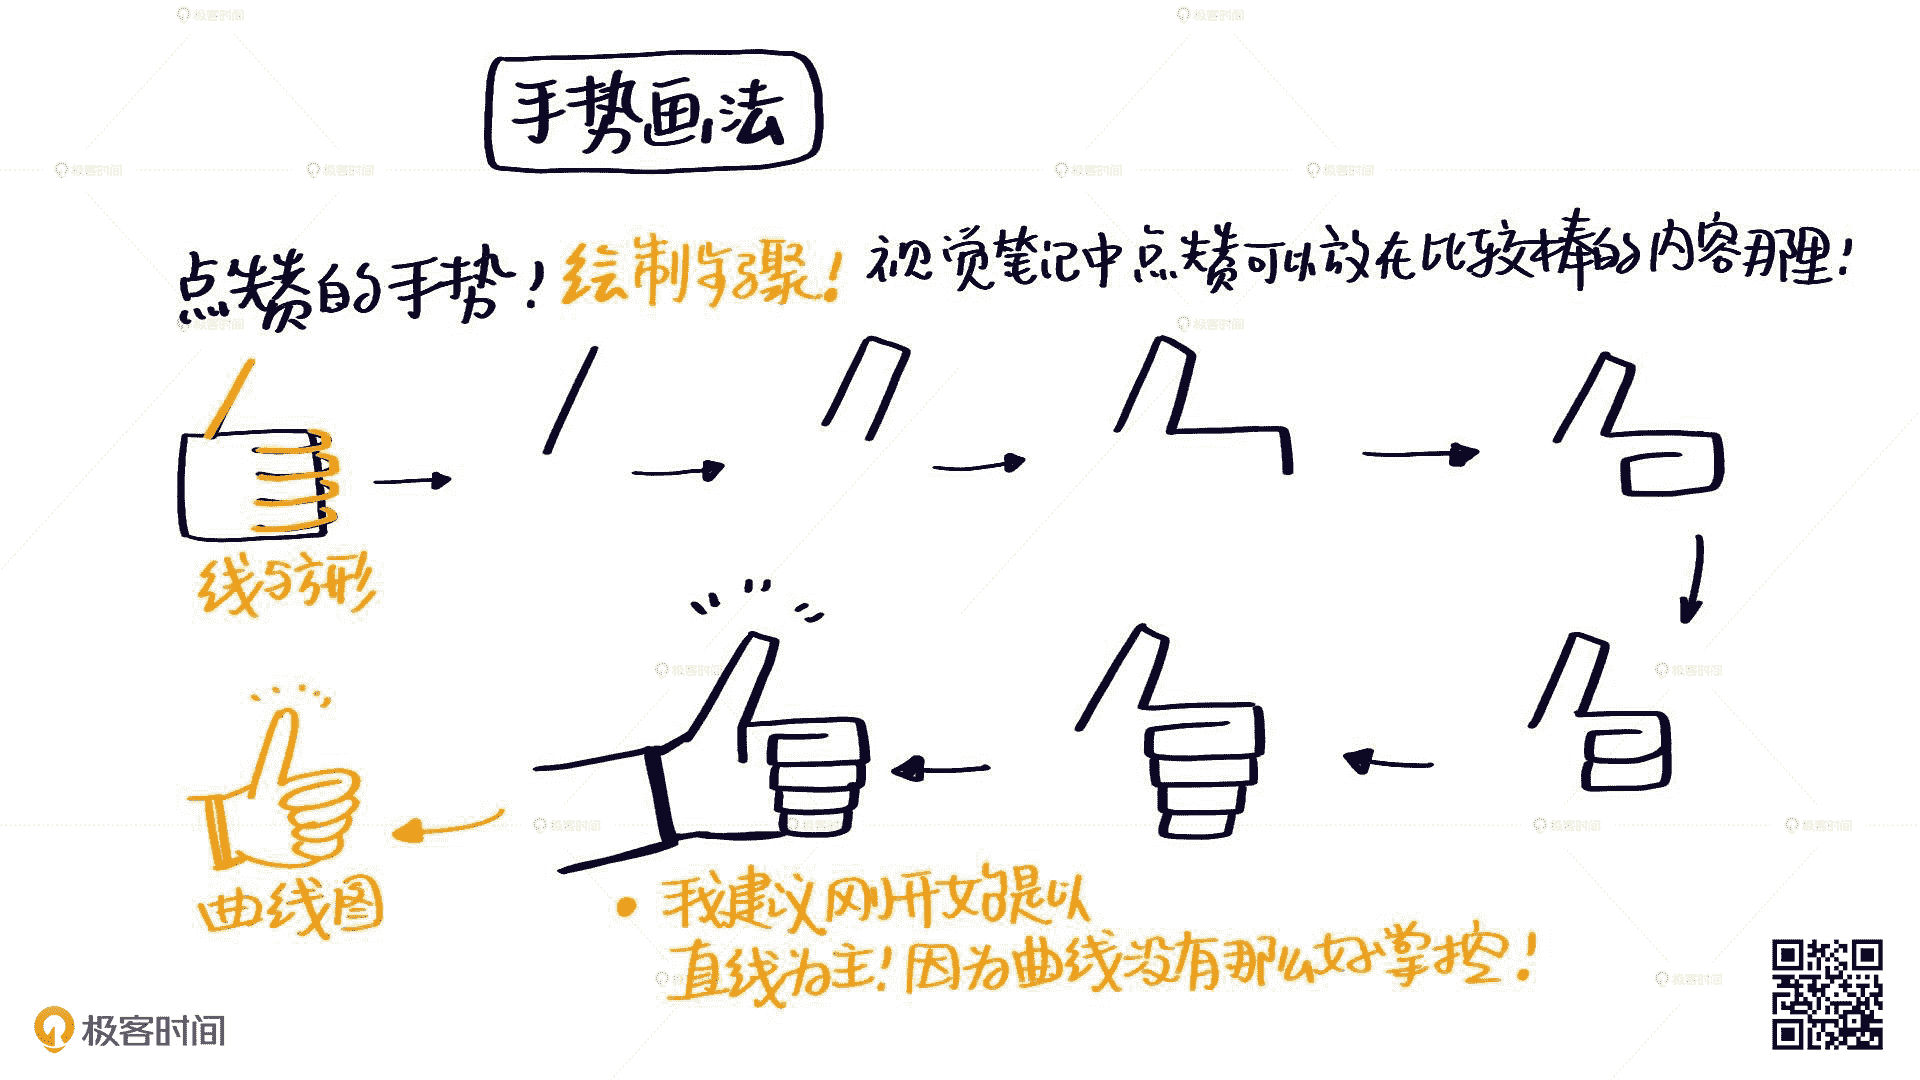 手势画法
点赞的手势！绘制步骤！视觉笔记中点赞可以放在比较棒的内容那里！
线与方形
曲线图
• 我建议刚开始是以
直线为主！因为曲线没有那么好掌控！
极客时间